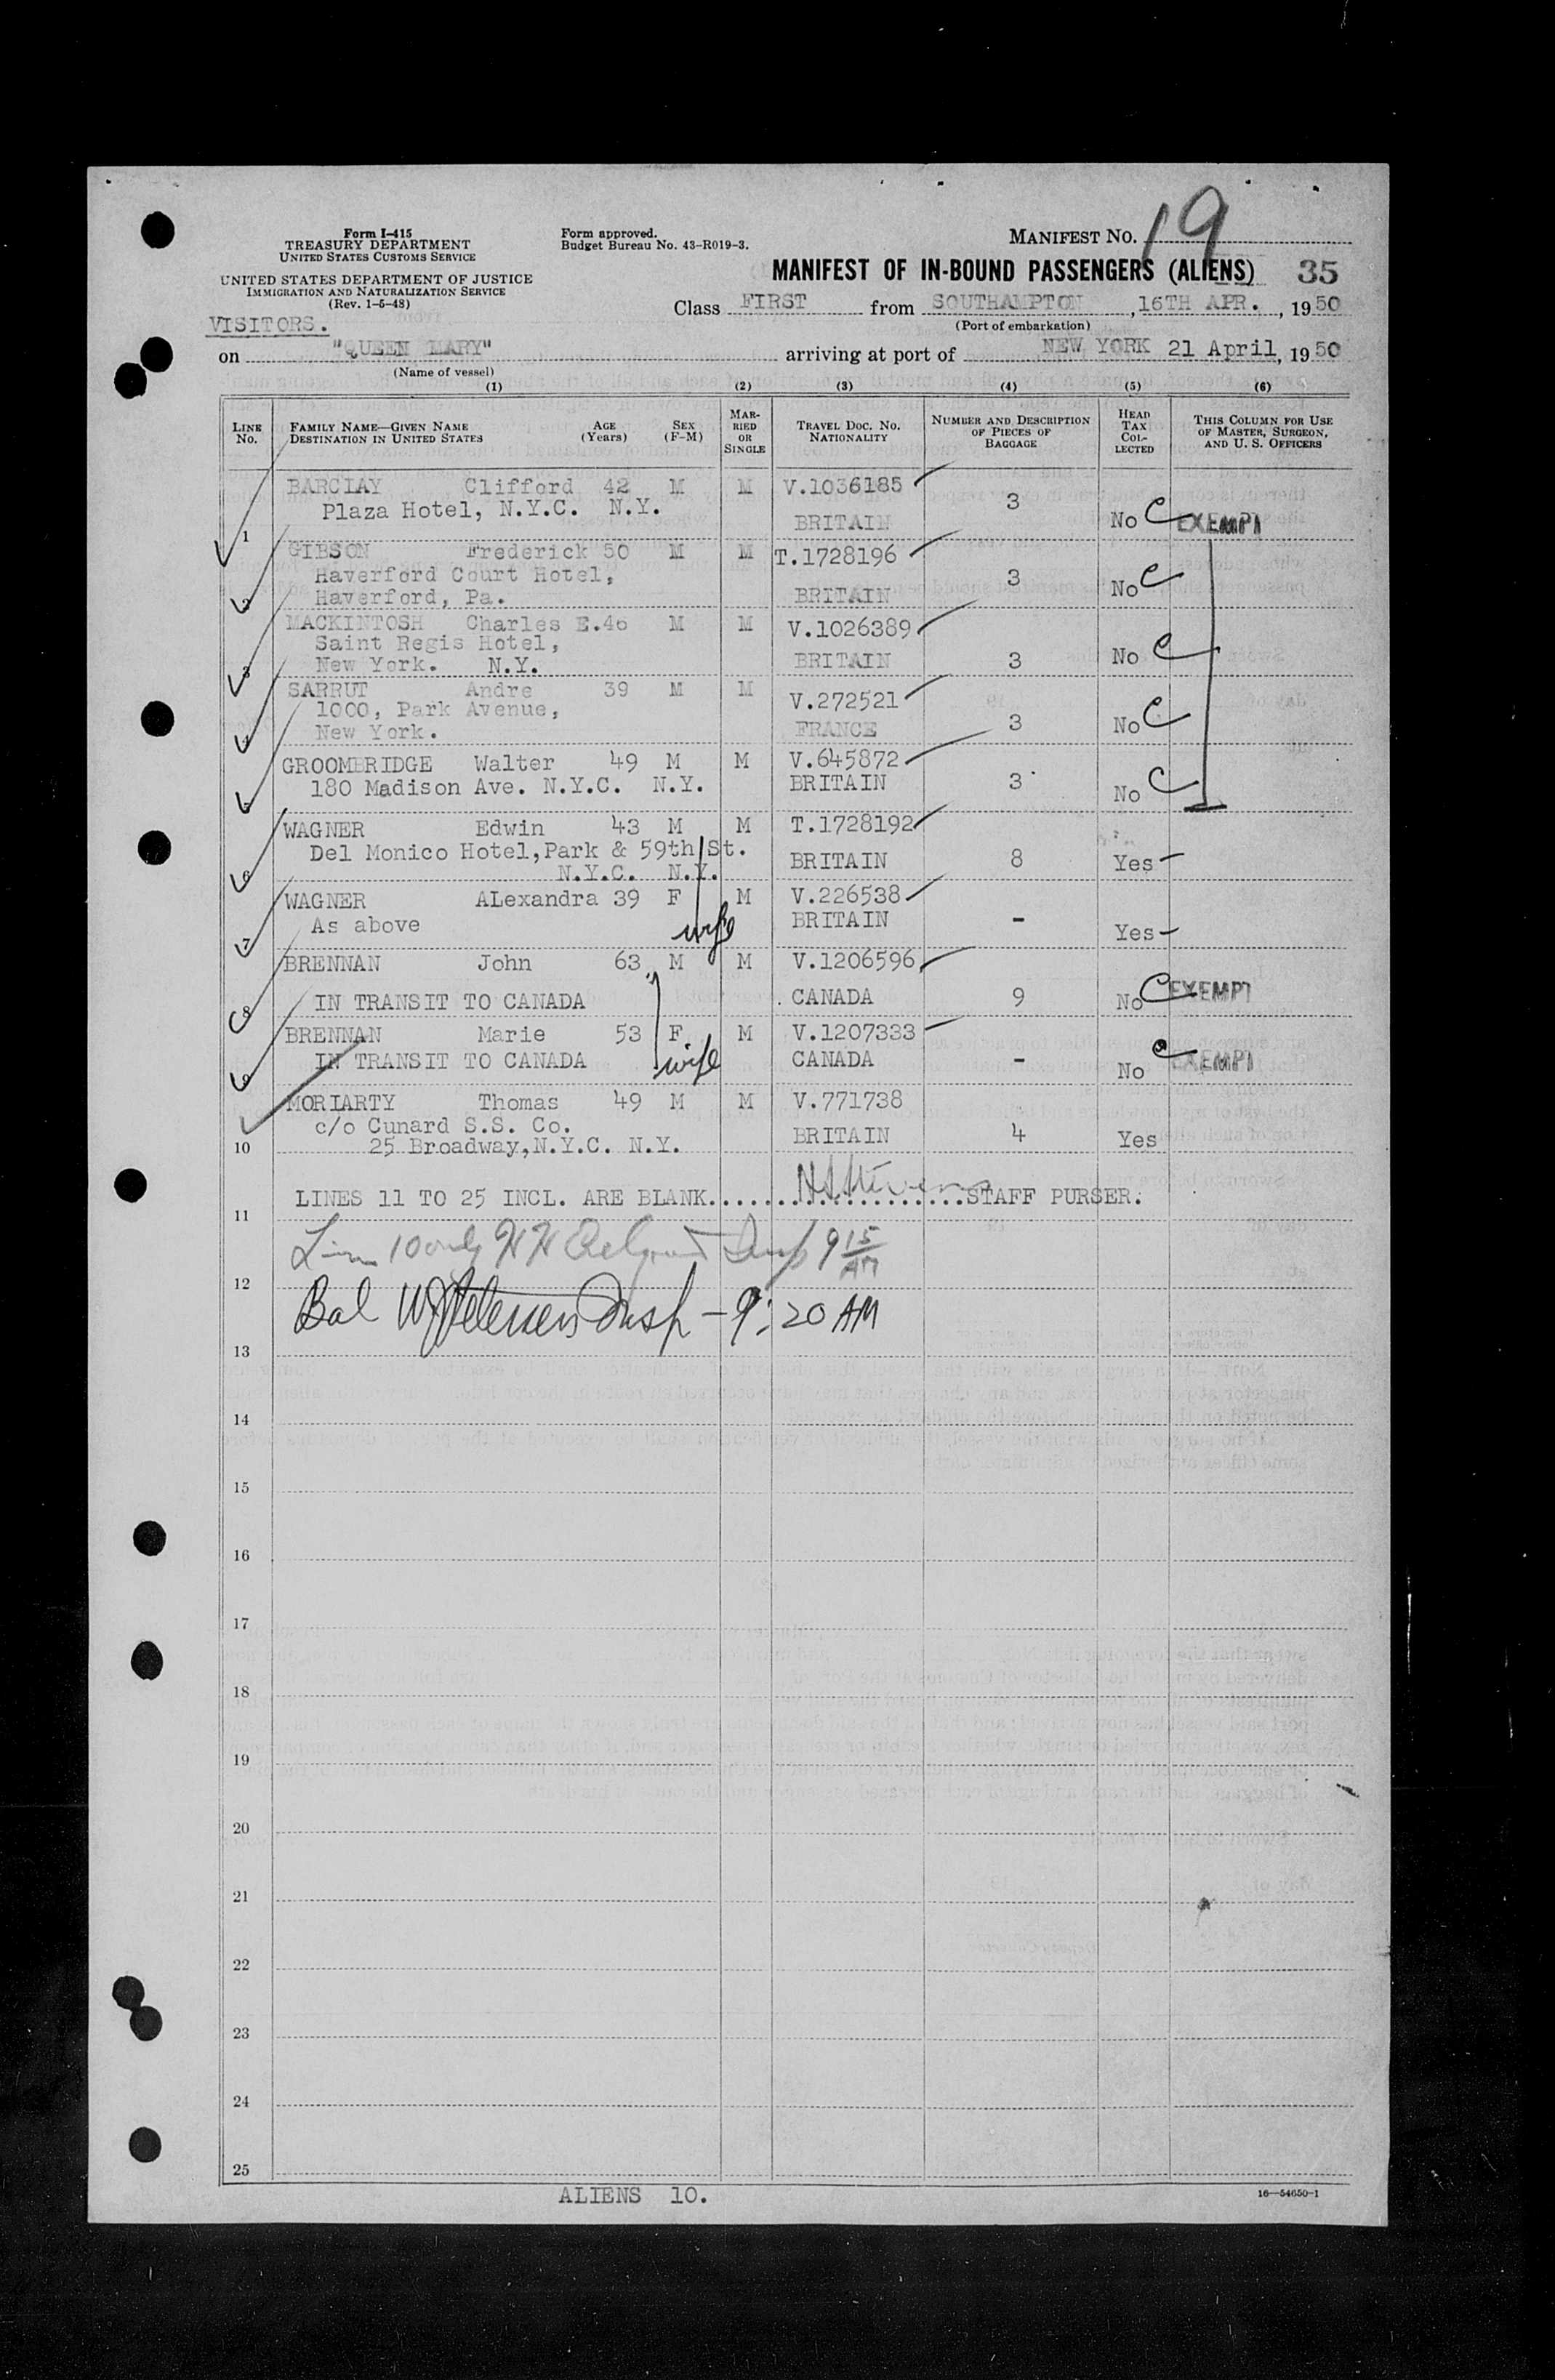 Form I-415
TREASURY DEPARTMENT
UNITED STATES CUSTOMS SERVICE
UNITED STATES DEPARTMENT OF JUSTICE
IMMIGRATION AND NATURALIZATION SERVICE
(Rev. 1-5-48)
Form approved.
Budget Bureau No. 43-R019-3.
MANIFEST NO. 19
MANIFEST OF IN-BOUND PASSENGERS (ALIENS) 35
Class FIRST from SOUTHAMPTON, 16TH APR., 1950
(Port of embarkation)
VISITORS.
on "QUEEN MARY" arriving at port of NEW YORK 21 April, 1950
(Name of vessel)
(1) (2) (3) (4) (5) (6)
LINE NO. FAMILY NAME—GIVEN NAME DESTINATION IN UNITED STATES AGE (Years) SEX (F-M) MARRIED OR SINGLE TRAVEL DOC. NO. NATIONALITY NUMBER AND DESCRIPTION OF PIECES OF BAGGAGE HEAD TAX COLLECTED THIS COLUMN FOR USE OF MASTER, SURGEON, AND U. S. OFFICERS
BARCLAY Clifford 42 M M V.1036185
Plaza Hotel, N.Y.C. N.Y. 3
1 BRITAIN No C EXEMPT
GIBSON Frederick 50 M M T.1728196
Haverford Court Hotel, 3
2 Haverford, Pa. BRITAIN No C
MACKINTOSH Charles E. 46 M M V.1026389
Saint Regis Hotel,
3 New York. N.Y. BRITAIN 3 No C
SARRUT Andre 39 M M V.272521
1000, Park Avenue,
4 New York. FRANCE 3 No C
GROOMBRIDGE Walter 49 M M V.645872
5 180 Madison Ave. N.Y.C. N.Y. BRITAIN 3 No C
WAGNER Edwin 43 M M T.1728192
Del Monico Hotel,Park & 59th St.
6 N.Y.C. N.Y. BRITAIN 8 Yes
WAGNER ALexandra 39 F M V.226538
7 As above wife BRITAIN - Yes
BRENNAN John 63 M M V.1206596
8 IN TRANSIT TO CANADA CANADA 9 No C EXEMPT
BRENNAN Marie 53 F M V.1207333
9 IN TRANSIT TO CANADA wife CANADA - No C EXEMPT
MORIARTY Thomas 49 M M V.771738
c/o Cunard S.S. Co.
10 25 Broadway,N.Y.C. N.Y. BRITAIN 4 Yes
LINES 11 TO 25 INCL. ARE BLANK...................STAFF PURSER.
11
Line 10 only Insp 9 15 AM
12
Bal Insp - 9:20 AM
13
14
15
16
17
18
19
20
21
22
23
24
25
ALIENS 10.
16—54650-1